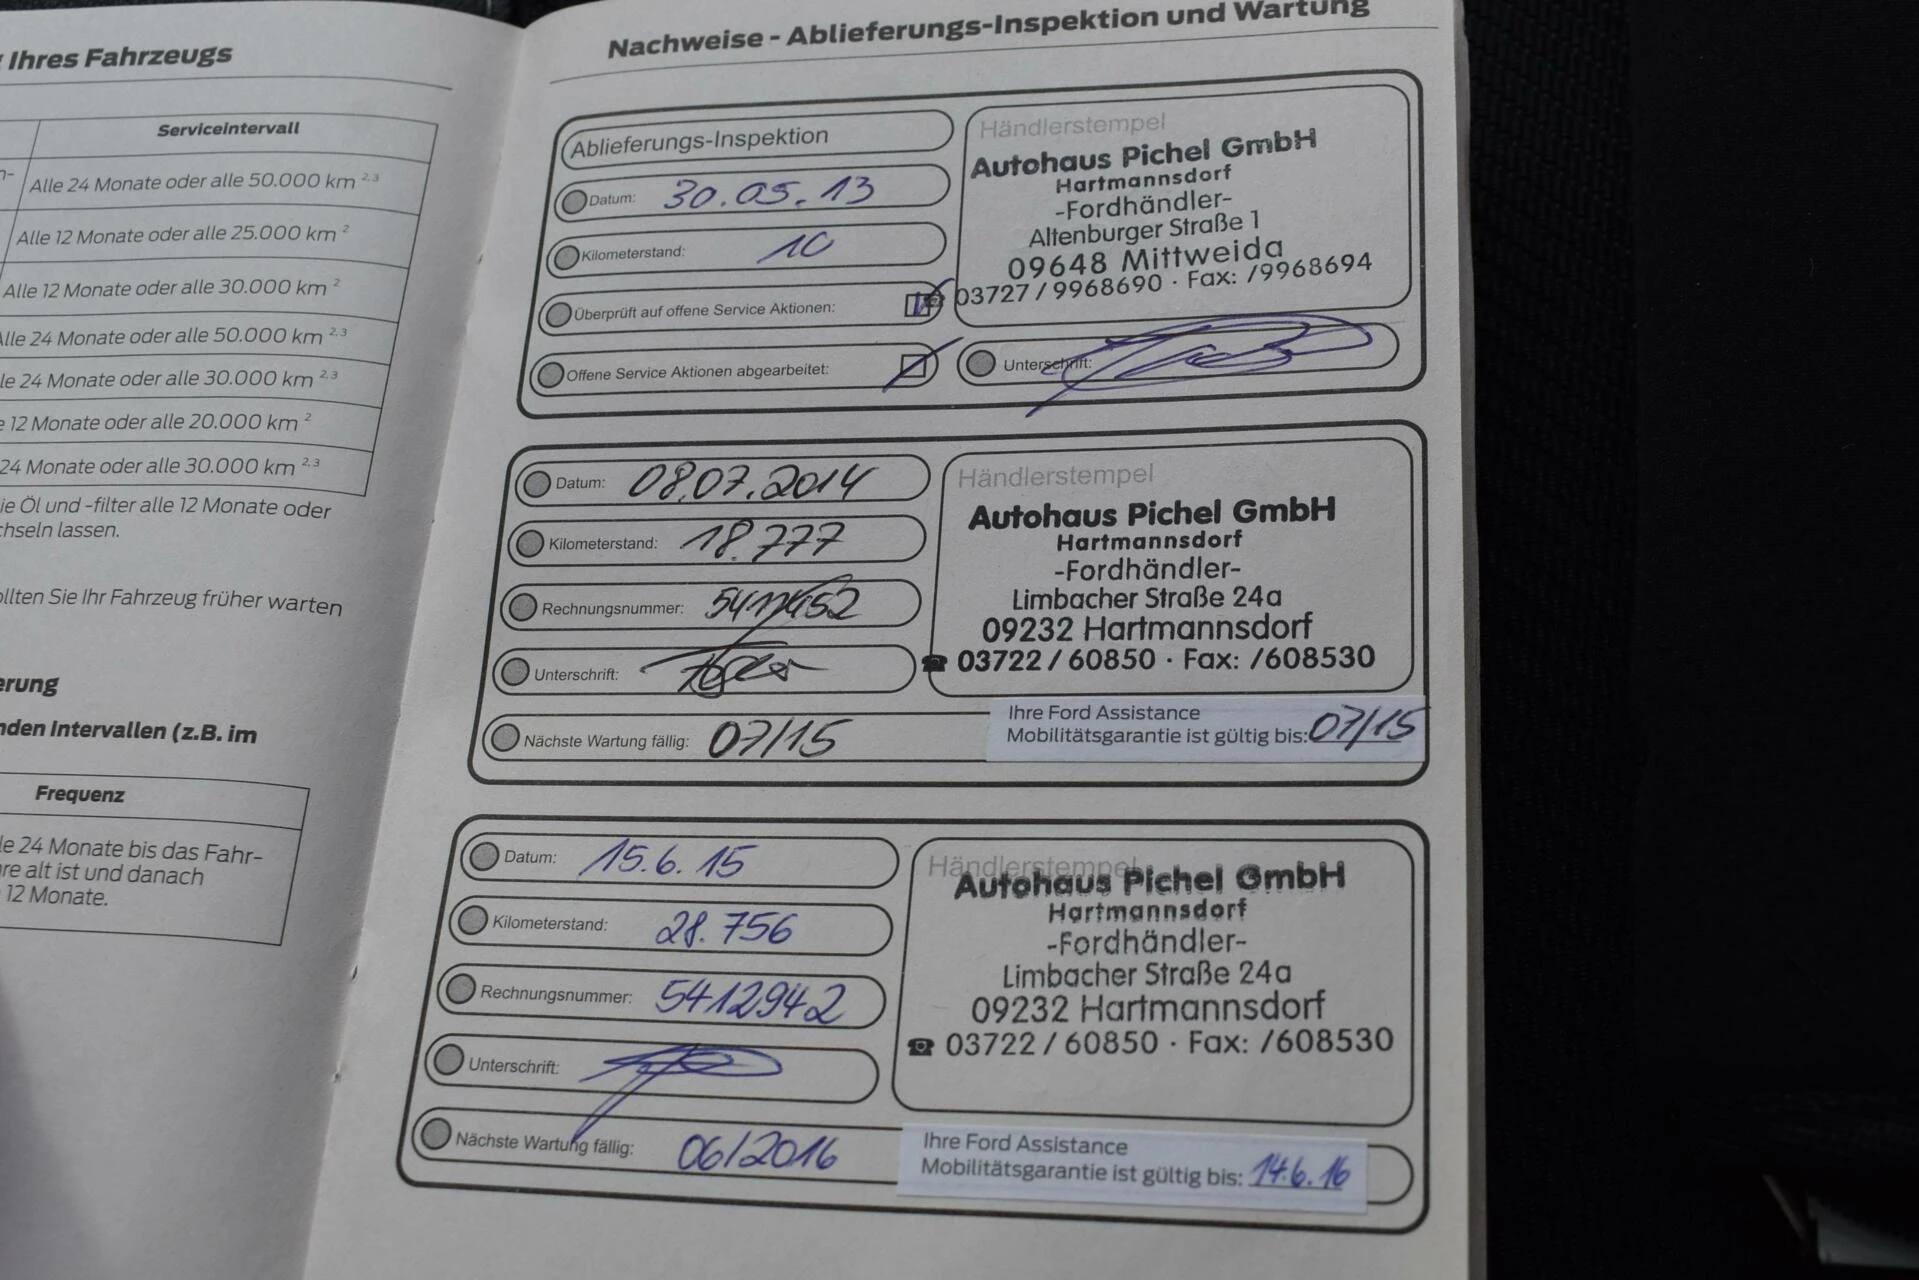 Ihres Fahrzeugs
Serviceintervall
Alle 24 Monate oder alle 50.000 km 2,3
Alle 12 Monate oder alle 25.000 km 2
Alle 12 Monate oder alle 30.000 km 2
Alle 24 Monate oder alle 50.000 km 2,3
le 24 Monate oder alle 30.000 km 2,3
e 12 Monate oder alle 20.000 km 2
24 Monate oder alle 30.000 km 2,3
ie Öl und -filter alle 12 Monate oder
chseln lassen.
ollten Sie Ihr Fahrzeug früher warten
erung
nden Intervallen (z.B. im
Frequenz
le 24 Monate bis das Fahr-
re alt ist und danach
12 Monate.
Nachweise - Ablieferungs-Inspektion und Wartung
Ablieferungs-Inspektion
Datum: 30.05.13
Kilometerstand: 10
Überprüft auf offene Service Aktionen:
Offene Service Aktionen abgearbeitet:
Händlerstempel
Autohaus Pichel GmbH
Hartmannsdorf
-Fordhändler-
Altenburger Straße 1
09648 Mittweida
☎ 03727/9968690 · Fax: /9968694
Unterschrift:
Datum: 08.07.2014
Kilometerstand: 18.777
Rechnungsnummer:
Unterschrift:
Nächste Wartung fällig: 07/15
Händlerstempel
Autohaus Pichel GmbH
Hartmannsdorf
-Fordhändler-
Limbacher Straße 24a
09232 Hartmannsdorf
☎ 03722/60850 · Fax: /608530
Ihre Ford Assistance
Mobilitätsgarantie ist gültig bis: 07/15
Datum: 15.6.15
Kilometerstand: 28.756
Rechnungsnummer: 5412942
Unterschrift:
Nächste Wartung fällig: 06/2016
Händlerstempel
Autohaus Pichel GmbH
Hartmannsdorf
-Fordhändler-
Limbacher Straße 24a
09232 Hartmannsdorf
☎ 03722/60850 · Fax: /608530
Ihre Ford Assistance
Mobilitätsgarantie ist gültig bis: 14.6.16